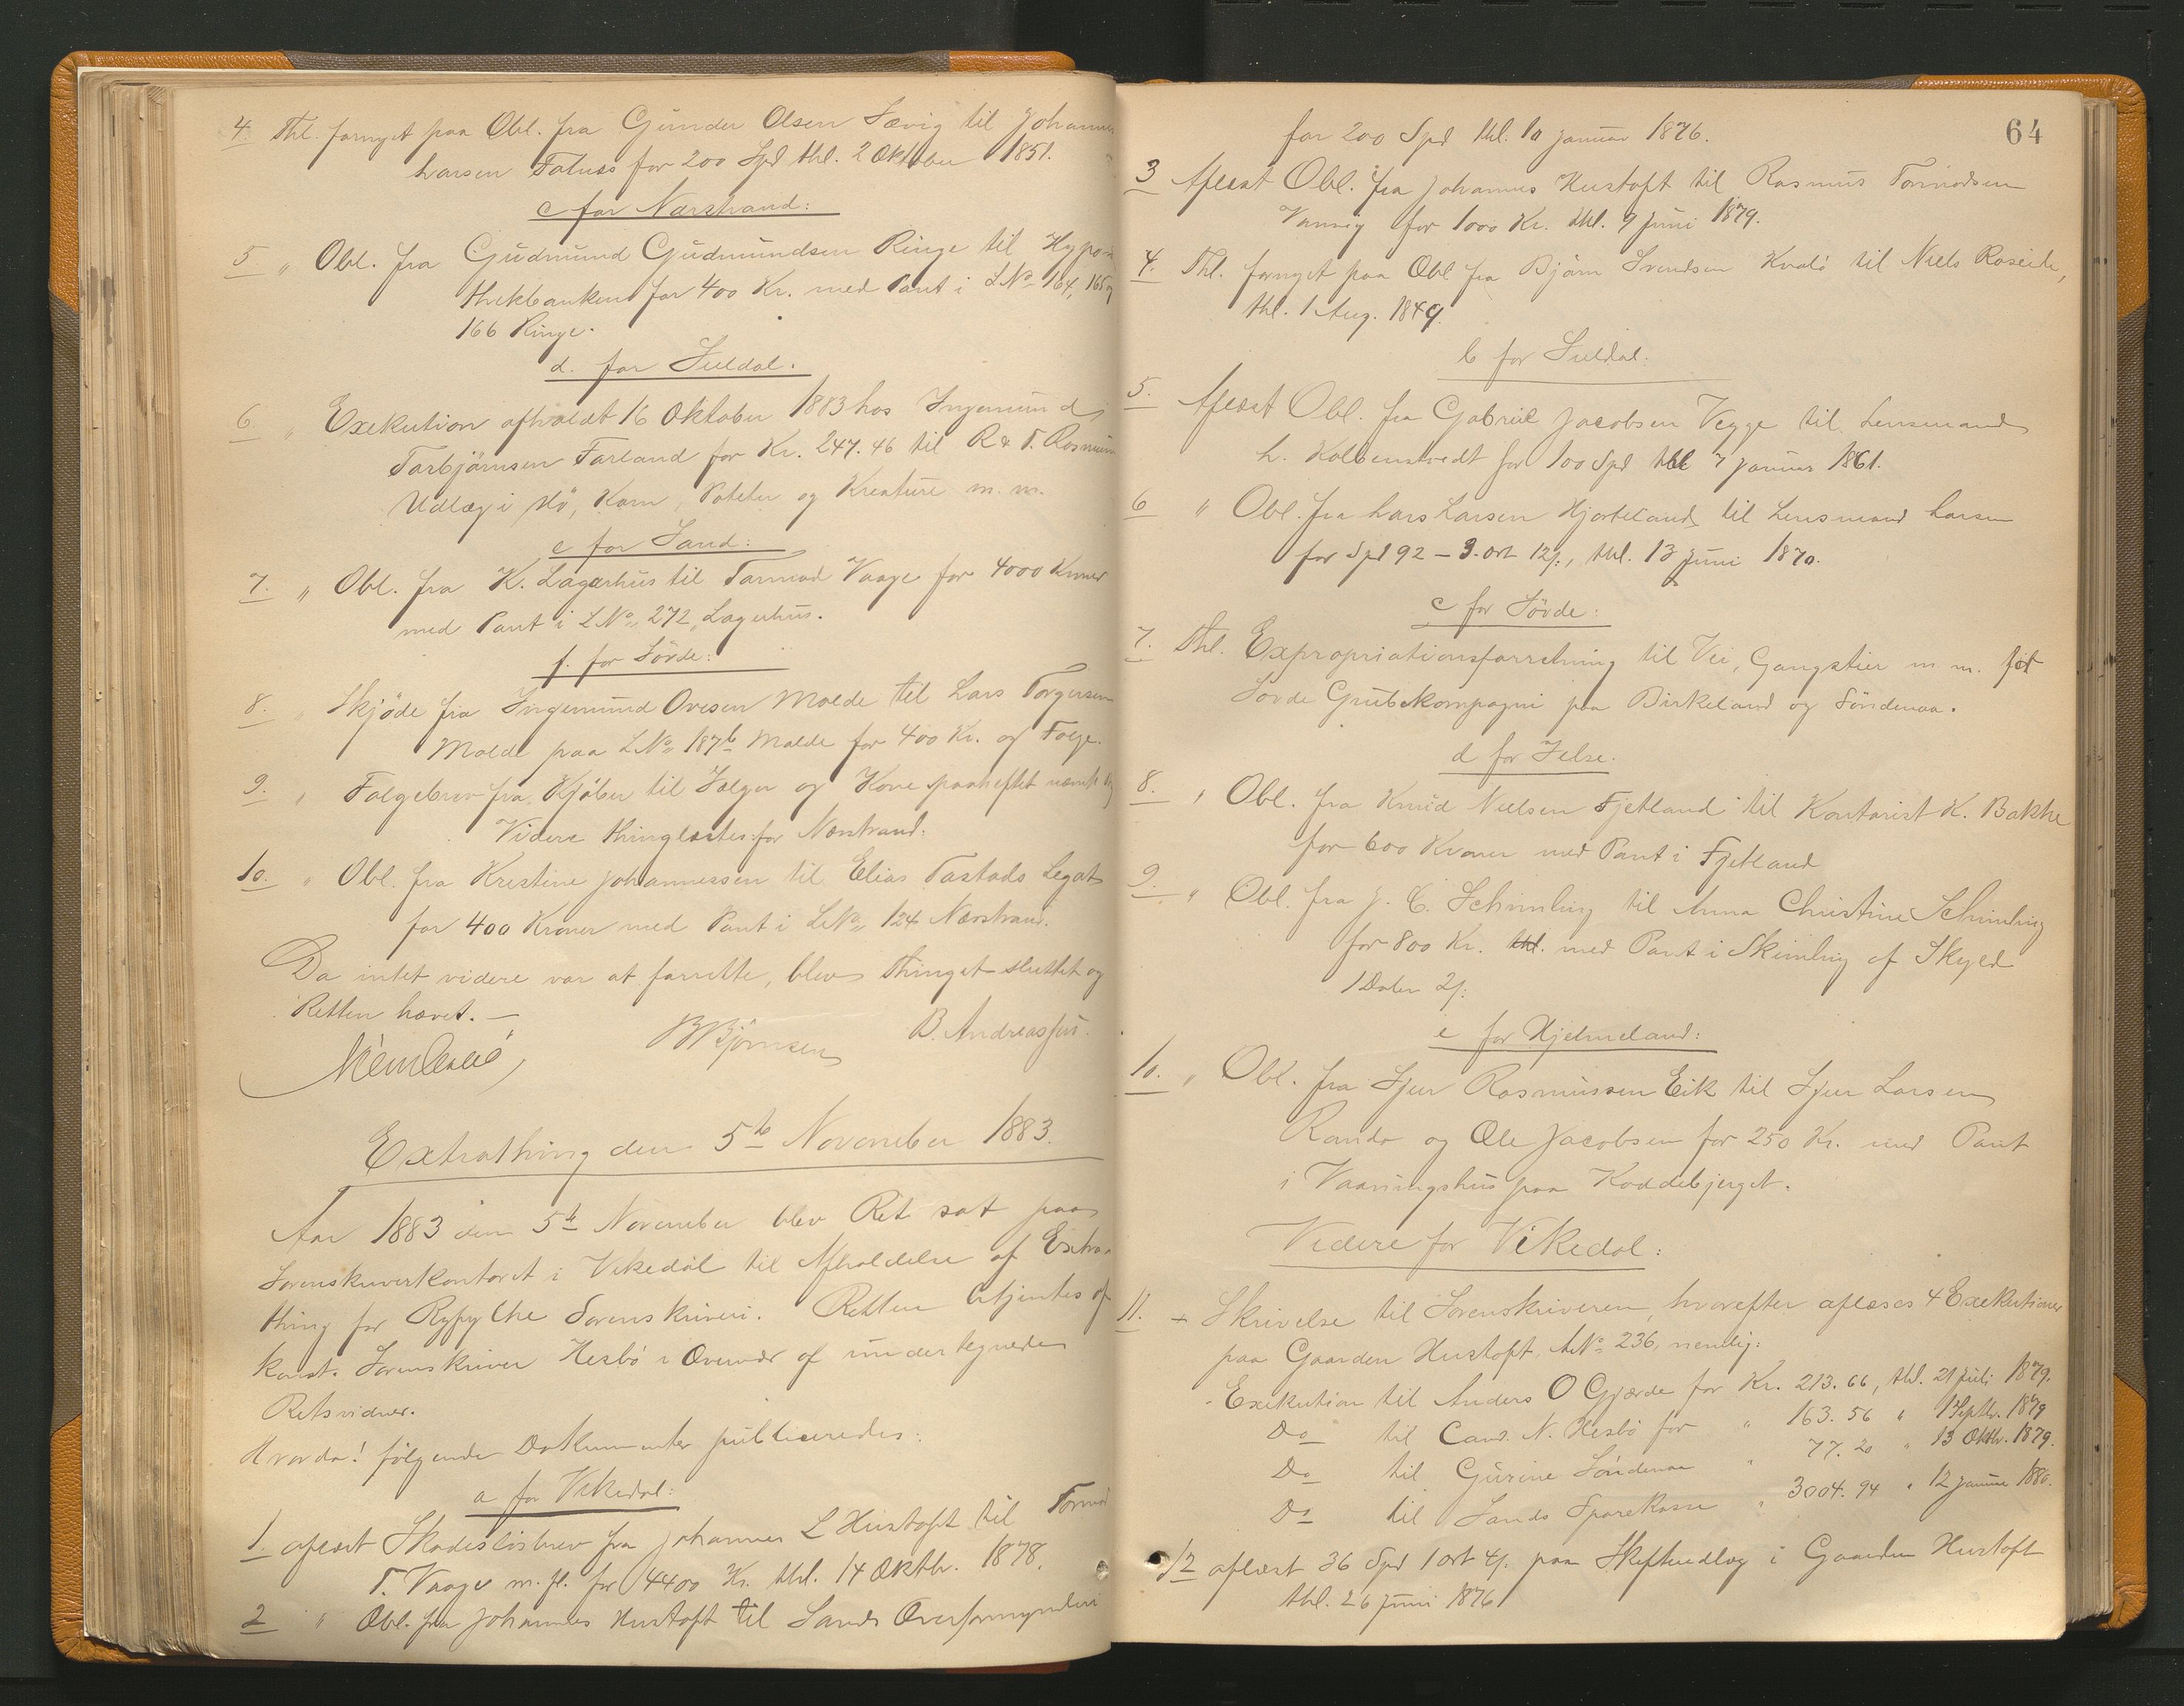 4. Thl. fornyet paa Obl. fra Gunder Olsen Sævig til Johannes
Larsen for 200 Spd thl. 2 Oktober 1851.
c for Nærstrand:
5 " Obl. fra Gudmund Gudmundsen Ringe til Hypo-
thekbanken for 400 Kr. med Pant i LNo 164, 165 og
166 Ringe.
d. for Suldal.
6. " Exekution afholdt 16 Oktober 1883 hos Ingemund
Torbjörnsen Farland for Kr. 247.46 til R & T. Rosmum
Udlæg i Hö, Korn, Poteter og Kreature m. m.
e for Sand:
7. " Obl. fra K. Lagerhus til Tormod Vaage for 4000 Kroner
med Pant i LNo 272, Lagerhus.
f. for Sövde:
8. " Skjöde fra Ingemund Ovesen Molde til Lars Torgersen
Molde paa LNo 187b Molde for 400 Kr. og Folge.
9. " Folgebrev fra Kjöber til Sælger og Kone paaheftet nævnte
Videre thinglæstes for Nærstrand:
10. " Obl. fra Kristine Johannessen til Elias Tastads Legat
for 400 Kroner med Pant i LNo 124 Nærstrand.
Da intet videre var at forrette, blev Thinget sluttet og
Retten hævet. —
B Björnsen B. Andreassen.
Extrathing den 5te November 1883.
Aar 1883 den 5te November blev Ret sat paa
Sorenskriverkontoret i Vikedal til Afholdelse af Extra-
thing for Ryfylke Sorenskriveri. Retten betjentes af
konst. Sorenskriver Hesbö i Overvær af undertegnede
Retsvidner.
Hvorda! fölgende Dokumenter publiceredes:
a for Vikedal:
1. aflæst Skadeslösbrev fra Johannes L Hustoft til Tormod
T. Vaage m. fl. for 4400 Kr. thl. 14 Oktbr. 1878.
2 " Obl. fra Johannes Hustoft til Sands Overformynderi
64
for 200 Spd thl. 10 Januar 1876.
3 Aflæst Obl. fra Johannes Hustoft til Rasmus Tormodsen
for 1000 Kr. thl. 9 Juni 1879.
4. Thl. fornyet paa Obl fra Björn Svendsen Kvalö til Niels Roseide,
thl. 1 Aug. 1849.
b for Suldal:
5. Aflæst Obl. fra Gabriel Jacobsen Vegge til Lensmand
h. Kolbenstvedt for 100 Spd thl 7 Januar 1861.
6 " Obl. fra Lars Larsen Hjorteland til Lensmand Larsen
for Spd 92 – 3 ort 12 s., thl. 13 Juni 1870.
c for Sövde:
7. Thl. Expropriationsforretning til Vei, Gangstier m m. for
Sövde Grubekompagni paa Birkeland og Söndenaa.
d for Jelse.
8. " Obl. fra Knud Nielsen Fjetland til Kontorist K. Bakke
for 600 Kroner med Pant i Fjetland
9. " Obl. fra J. C. Schimling til Anna Christine Schimling
for 800 Kr. thl. med Pant i Skimling af Skyld
1 Daler 2 s:
e for Hjelmeland:
10. " Obl. fra Sjur Rasmussen Eik til Sjur Larsen
Randö og Ole Jacobsen for 250 Kr. med Pant
i Vaaningshus paa Koddebjerget.
Videre for Vikedal:
11. Skrivelse til Sorenskriveren, hvorefter aflæses 4 Exekutioner
paa Gaarden Hustoft, LNo 236, nemlig:
Exekution til Anders O Gjærde for Kr. 213.66, thl. 21 Juli 1879.
Do til Cand. N. Hesbö for " 163.56 " 1 Septbr. 1879
Do til Gurine Söndenaa " 77.20 " 13 Oktbr. 1879.
Do til Sands Sparekasse " 3004.94 " 12 Januar 1880.
12 aflæst 36 Spd 1 ort 4 s. paa Skifteudlæg i Gaarden Hustoft
thl. 26 Juni 1876